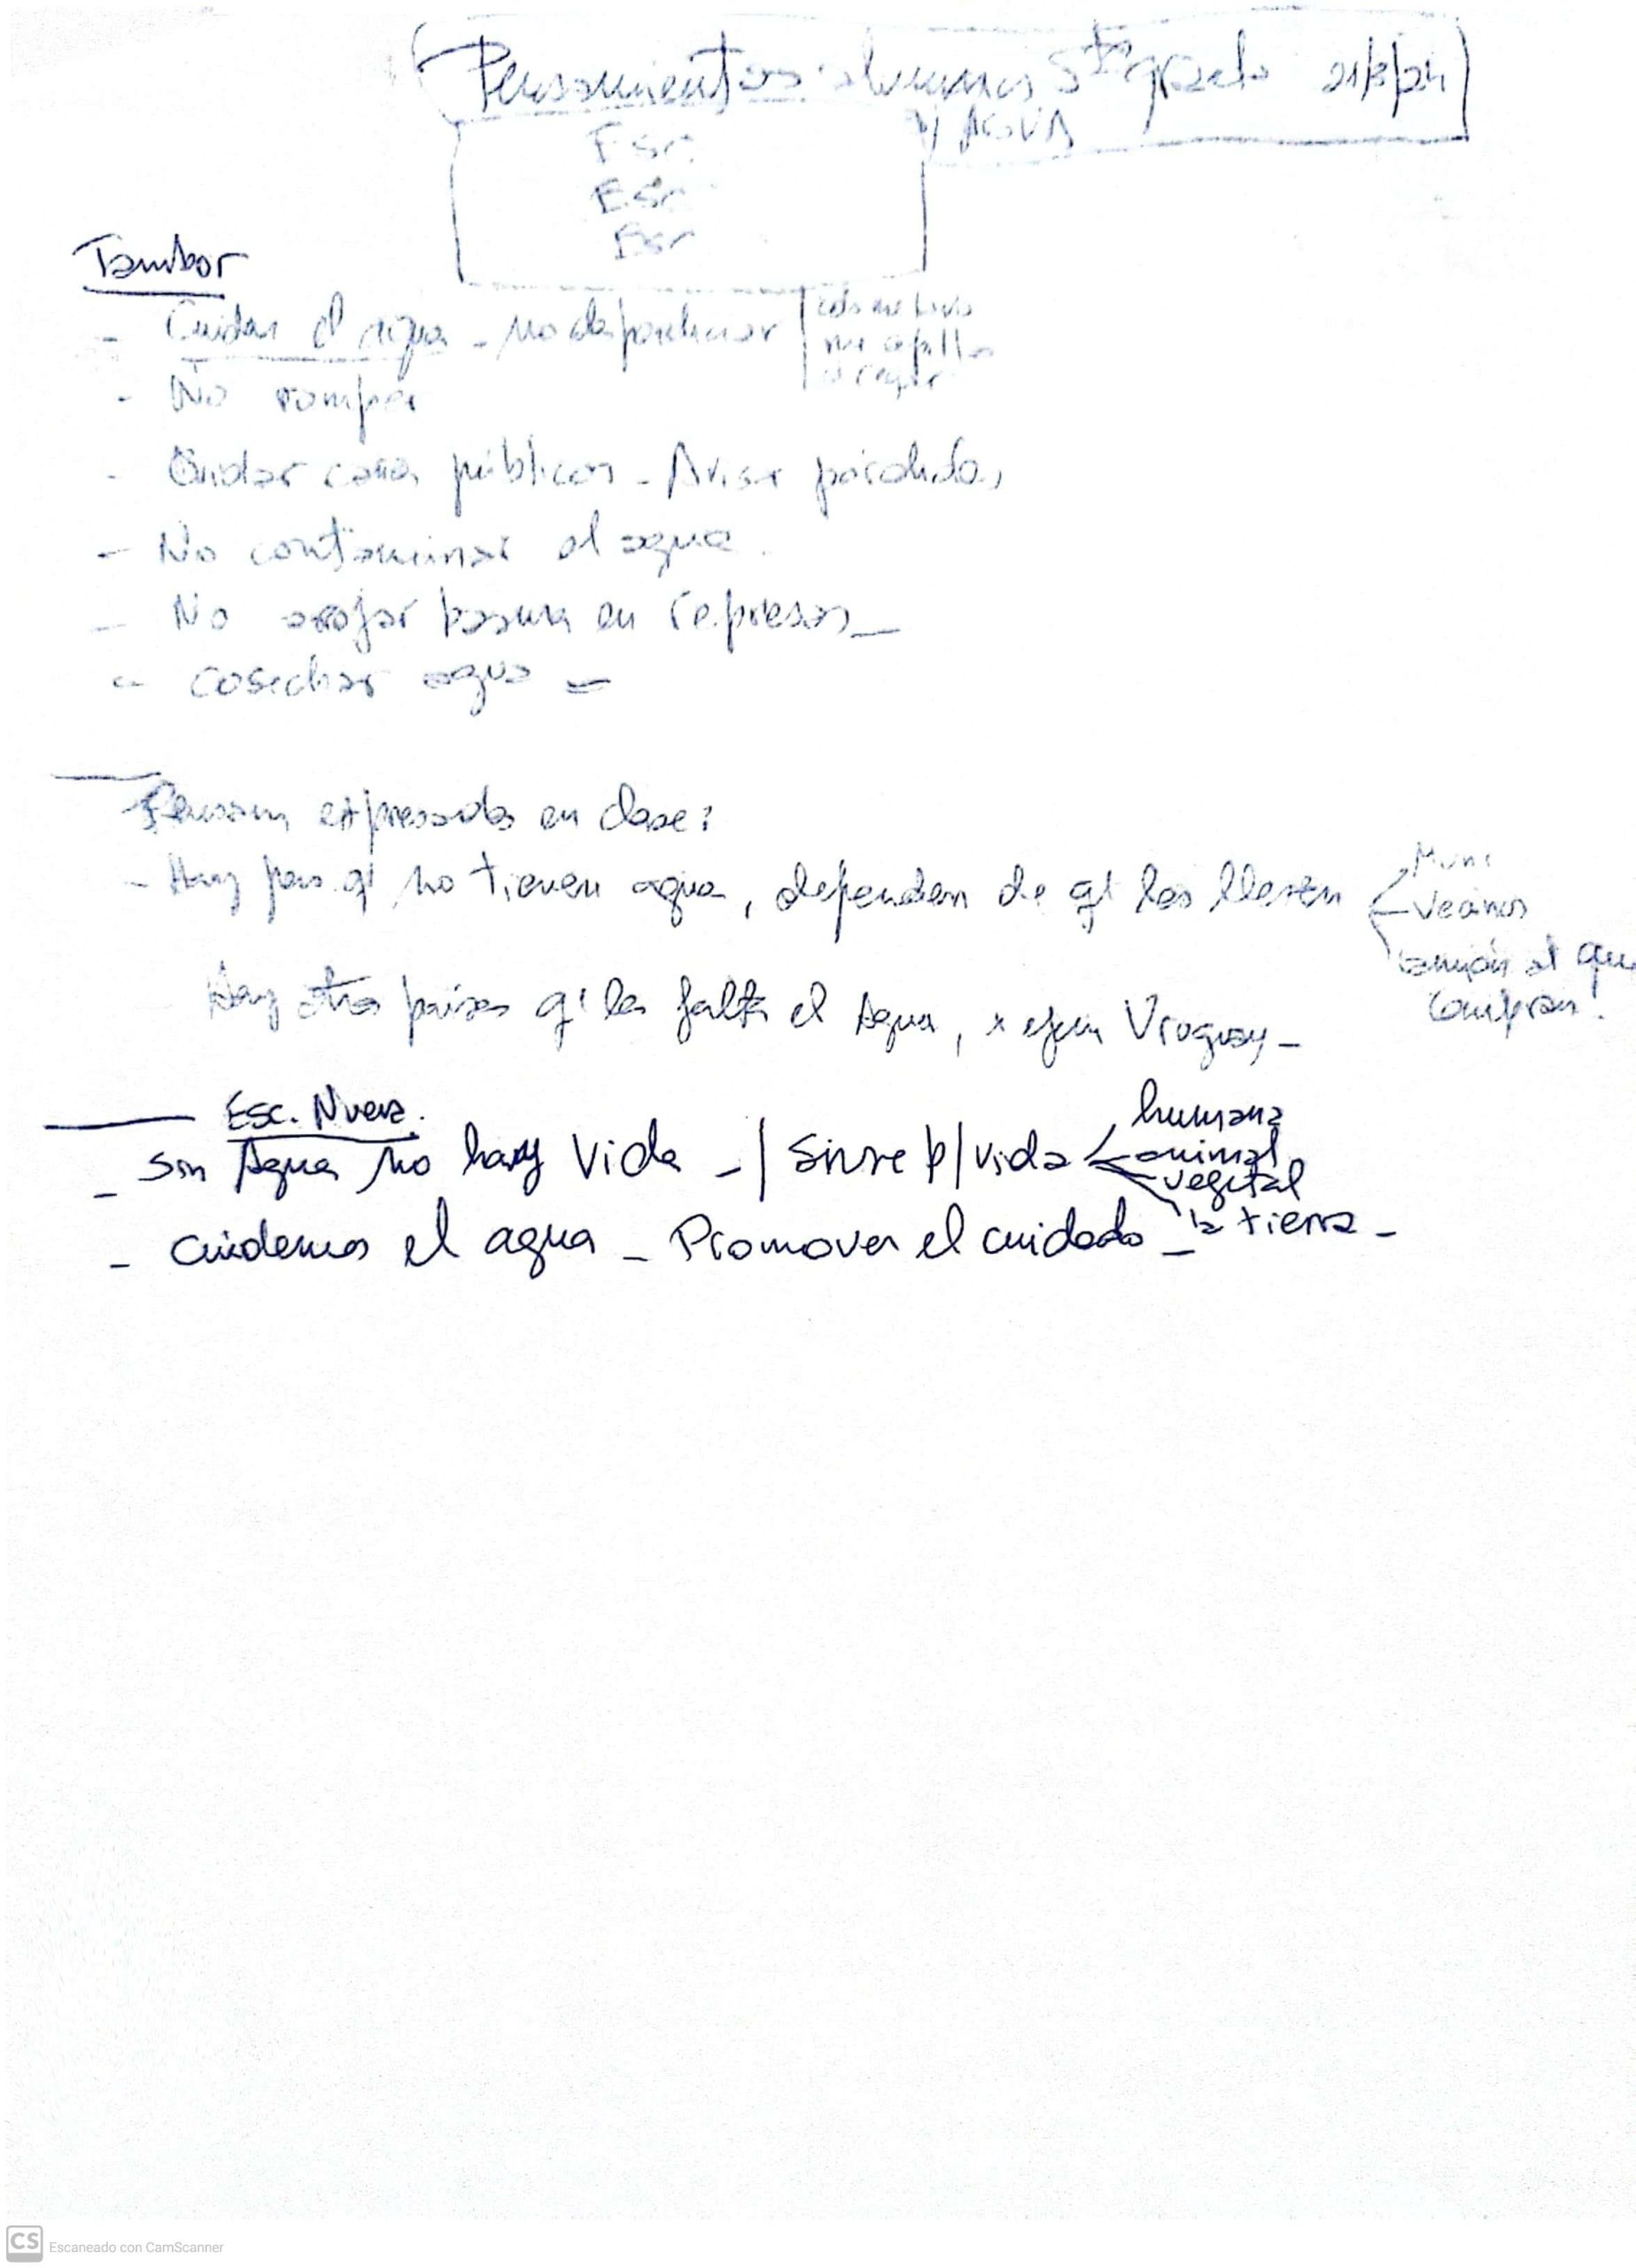 Pensamientos alumnos 5to grado 21/3/24
y AGUA
Esc.
Esc
Esc
Tambor
- Cuidar el agua - no desperdiciar
- No romper
- Cuidar públicos - Avisar pérdidas
- No contaminar el agua.
- No arrojar basura en represas -
- cosechar agua -
expresados en clase:
- Hay q' no tienen agua, dependen de q' les lleven
Muni
Vecinos
camión al que
compran!
Hay otros países q' les falta el Agua, x ejem Uruguay -
Esc. Nueva.
- Sin Agua no hay Vida - / Sirve p/ vida
humana
animal
vegetal
la tierra -
- Cuidemos el agua - Promover el cuidado -
CS Escaneado con CamScanner